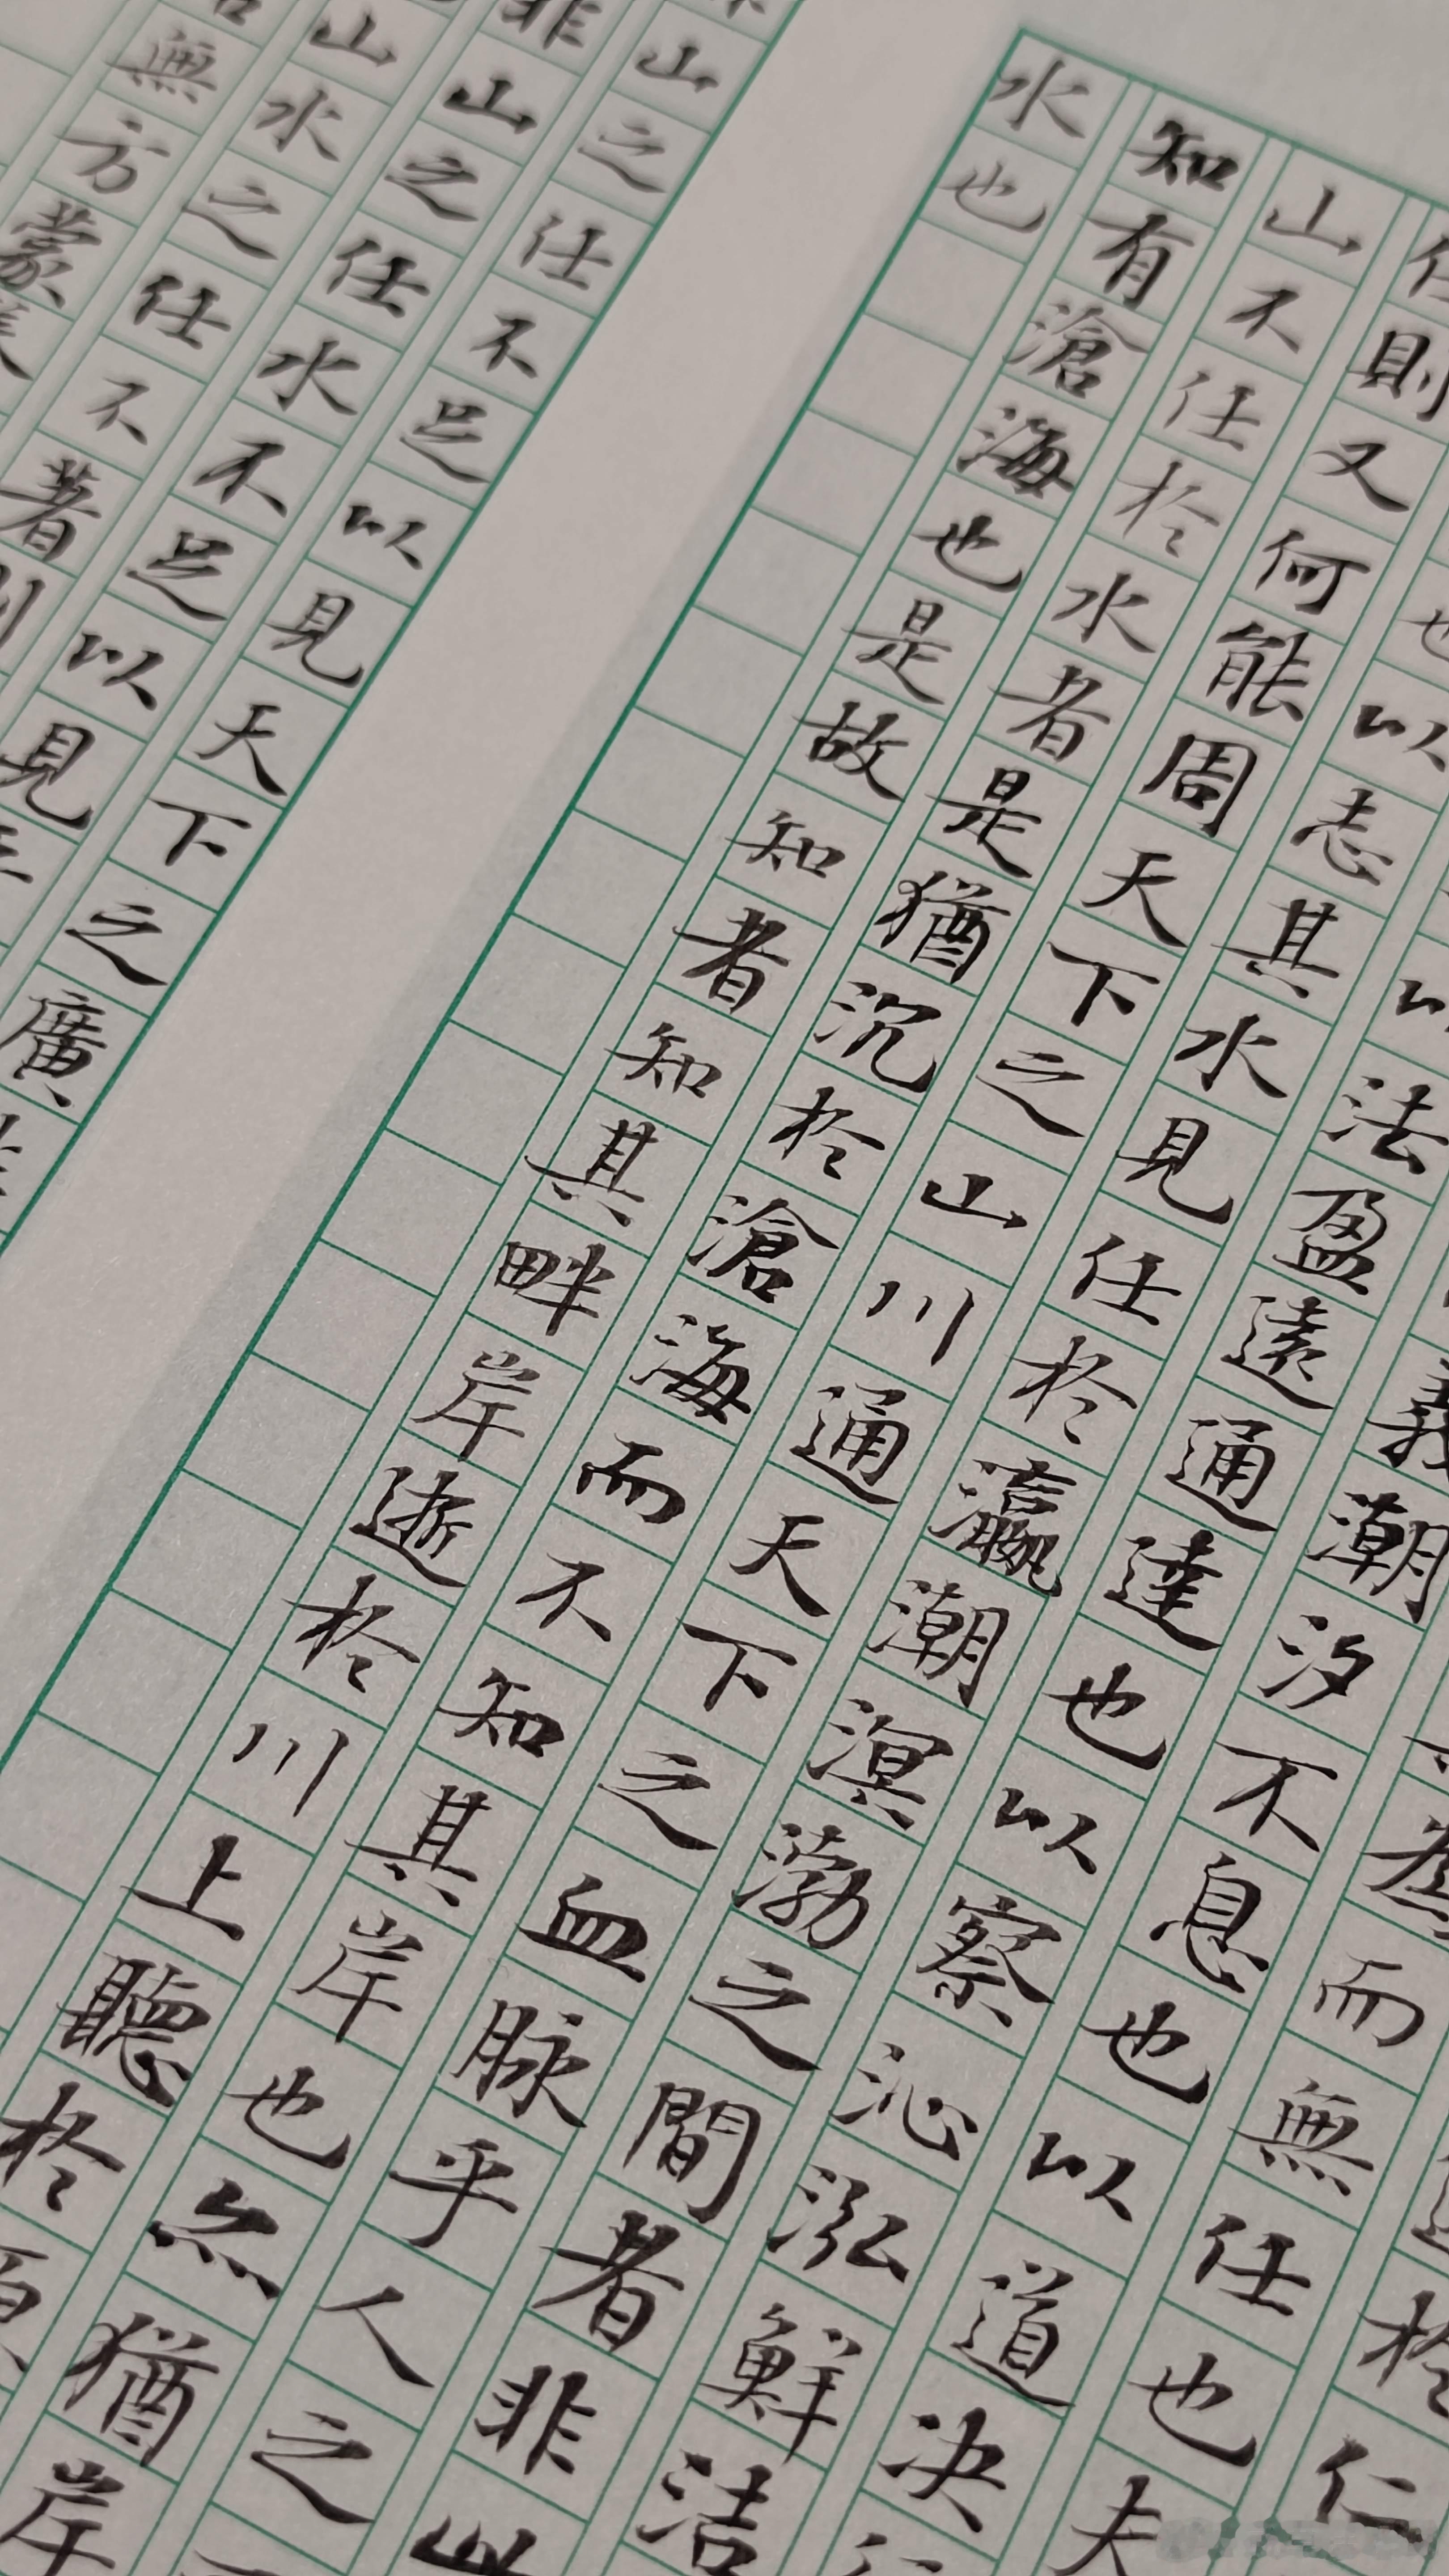 於仁
為而無任也夫
義潮汐不息也以道決
以法盈遠通達也以察沁泓鮮洁
也以志其水見任於瀛潮溟渤之間者非
任則又何能周天下之山川通天下之血脉乎人之
山不任於水者是猶沉於滄海而不知其岸也亦猶岸
知有滄海也是故知者知其畔岸逝於川上聽於
水也
山之任不足以見天下之廣
非山之任水不足以見
山水之任不著則
無方蒙養